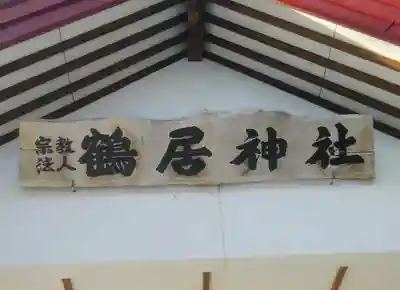 宗教法人
鶴居神社